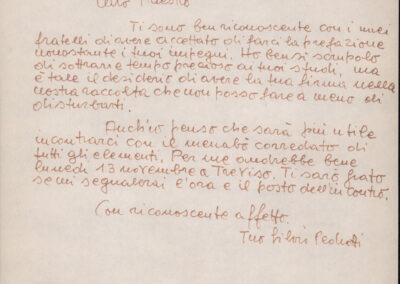 Caro Maestro
Ti sono ben riconoscente con i miei
fratelli di avere accettato di farci la prefazione
nonostante i tuoi impegni. Ho bensì scrupolo
di sottrarre tempo prezioso ai tuoi studi, ma
è tale il desiderio di avere la tua firma nella
nostra raccolta che non posso fare a meno di
disturbarti.
Anch'io penso che sarà più utile
incontrarci con il menabò corredato di
tutti gli elementi. Per me andrebbe bene
lunedì 13 novembre a Treviso. Ti sarò grato
se mi segnalerai l'ora e il posto dell'incontro.
Con riconoscente affetto.
Tuo Silvio